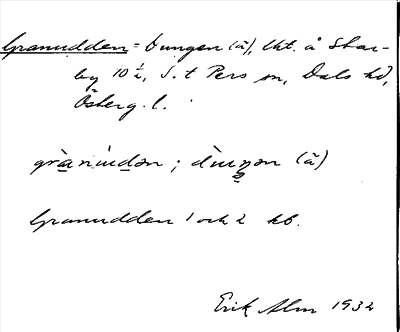 Granudden = Dungen (ã), lht. å Skar-
by 10 ½, S. t Pers sn, Dals hd,
Österg. l.
gràanùdən ; dùŋən (ã)
Granudden 1 och 2 kb.
Erik Alm 1932